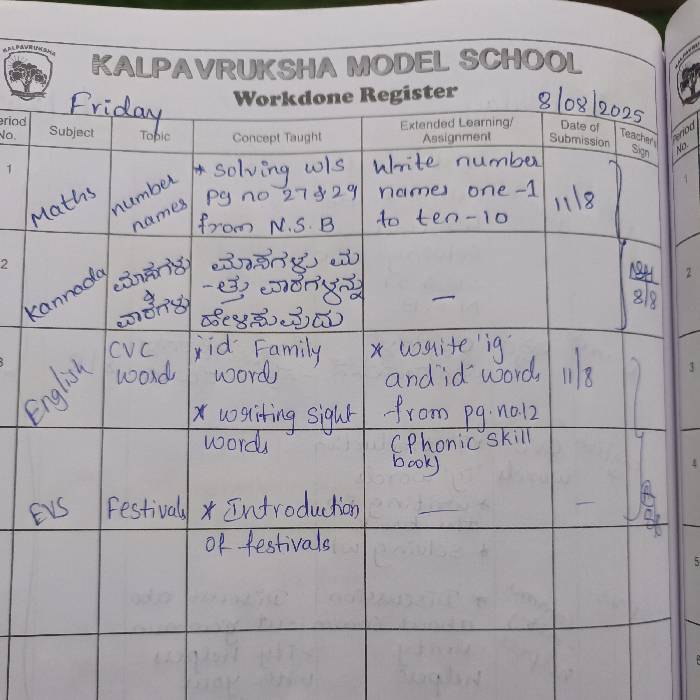 KALPAVRUKSHA
KALPAVRUKSHA MODEL SCHOOL
Workdone Register
Friday
8/08/2025
Period No.
Subject
Topic
Concept Taught
Extended Learning/ Assignment
Date of Submission
Teacher's Sign
1
Maths
number names
* Solving w/s
pg no 27 & 29
from N.S.B
Write number
names one-1
to ten-10
11/8
2
Kannada
ಮಾಸಗಳು
&
ವಾರಗಳು
ಮಾಸಗಳು ಮ
-ತ್ತು ವಾರಗಳನ್ನು
ಹೇಳಿಸುವುದು
—
8/8
3
English
CVC
word
* id Family
words
* writing sight
words
* write 'ig
and id words
from pg.no.12
(Phonic skill
book)
11/8
EVS
Festivals
* Introduction
of festivals
—
—
Period No.
1
2
3
4
5
6